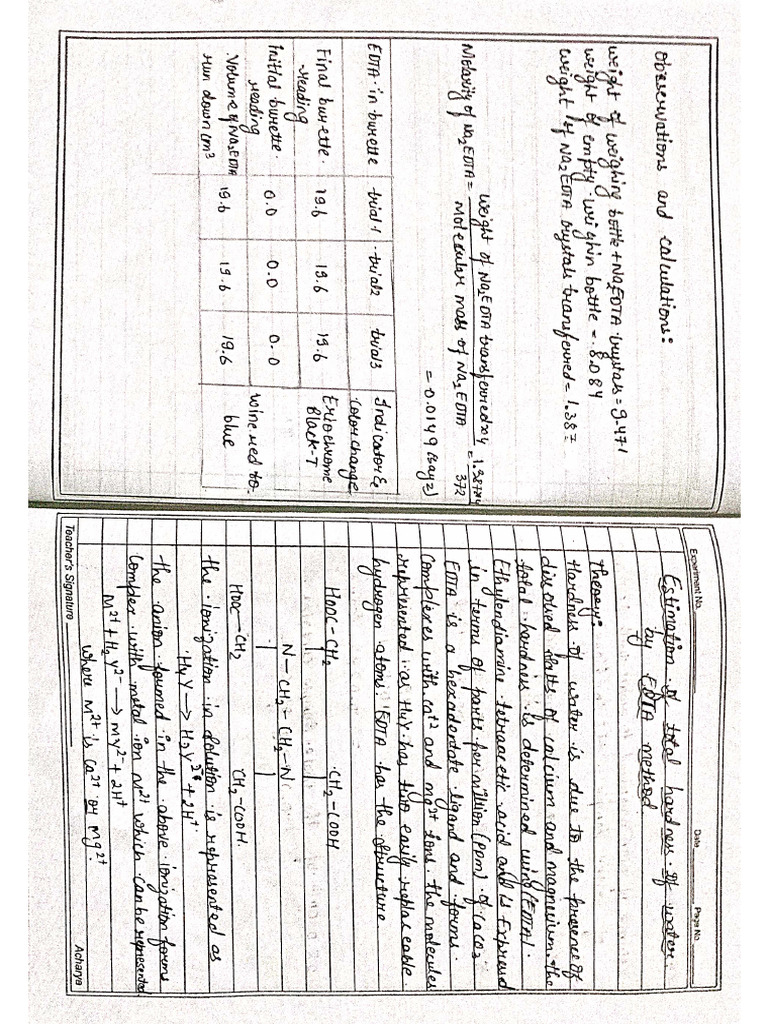 Observations and calculations:
weight of weighing bottle + Na2EDTA crystals = 9.471
weight of empty weighin bottle = 8.084
weight of Na2EDTA crystals transferred = 1.387
Molarity of Na2EDTA = weight of Na2EDTA transferred x 4 / Molecular mass of Na2EDTA = 1.387x4 / 372
= 0.0149 (say z)
EDTA in burette trial 1 trial 2 trial 3 Indicator & color change
Final burette reading 19.6 19.6 19.6 Eriochrome Black-T
Initial burette reading 0.0 0.0 0.0 wine red to blue
Volume of Na2EDTA run down cm3 19.6 19.6 19.6
Experiment No. Date Page No.
Estimation of total hardness of water
by EDTA method
Theory:
Hardness of water is due to the presence of
dissolved salts of calcium and magnesium. the
total hardness is determined using (EDTA)
Ethylendiamine tetracetic acid and is Expresed
in terms of parts per million (ppm) of CaCO3
EDTA is a hexadentate ligand and forms
Complexes with Ca+2 and mg2+ Ions. the molecules
represented as H4Y has two easily replaceable
hydrogen atoms. EDTA has the structure
HOOC-CH2 CH2-COOH
N-CH2-CH2-N
HOOC-CH2 CH2-COOH
the ionization in solution is represented as
H4Y → H2Y2- + 2H+
the anion foumed in the above ionization forms
complex with metal ion M2+ which can be represented
M2+ + H2Y2- → MY2- + 2H+
where M2+ is Ca2+ or Mg2+
Teacher's Signature Acharya